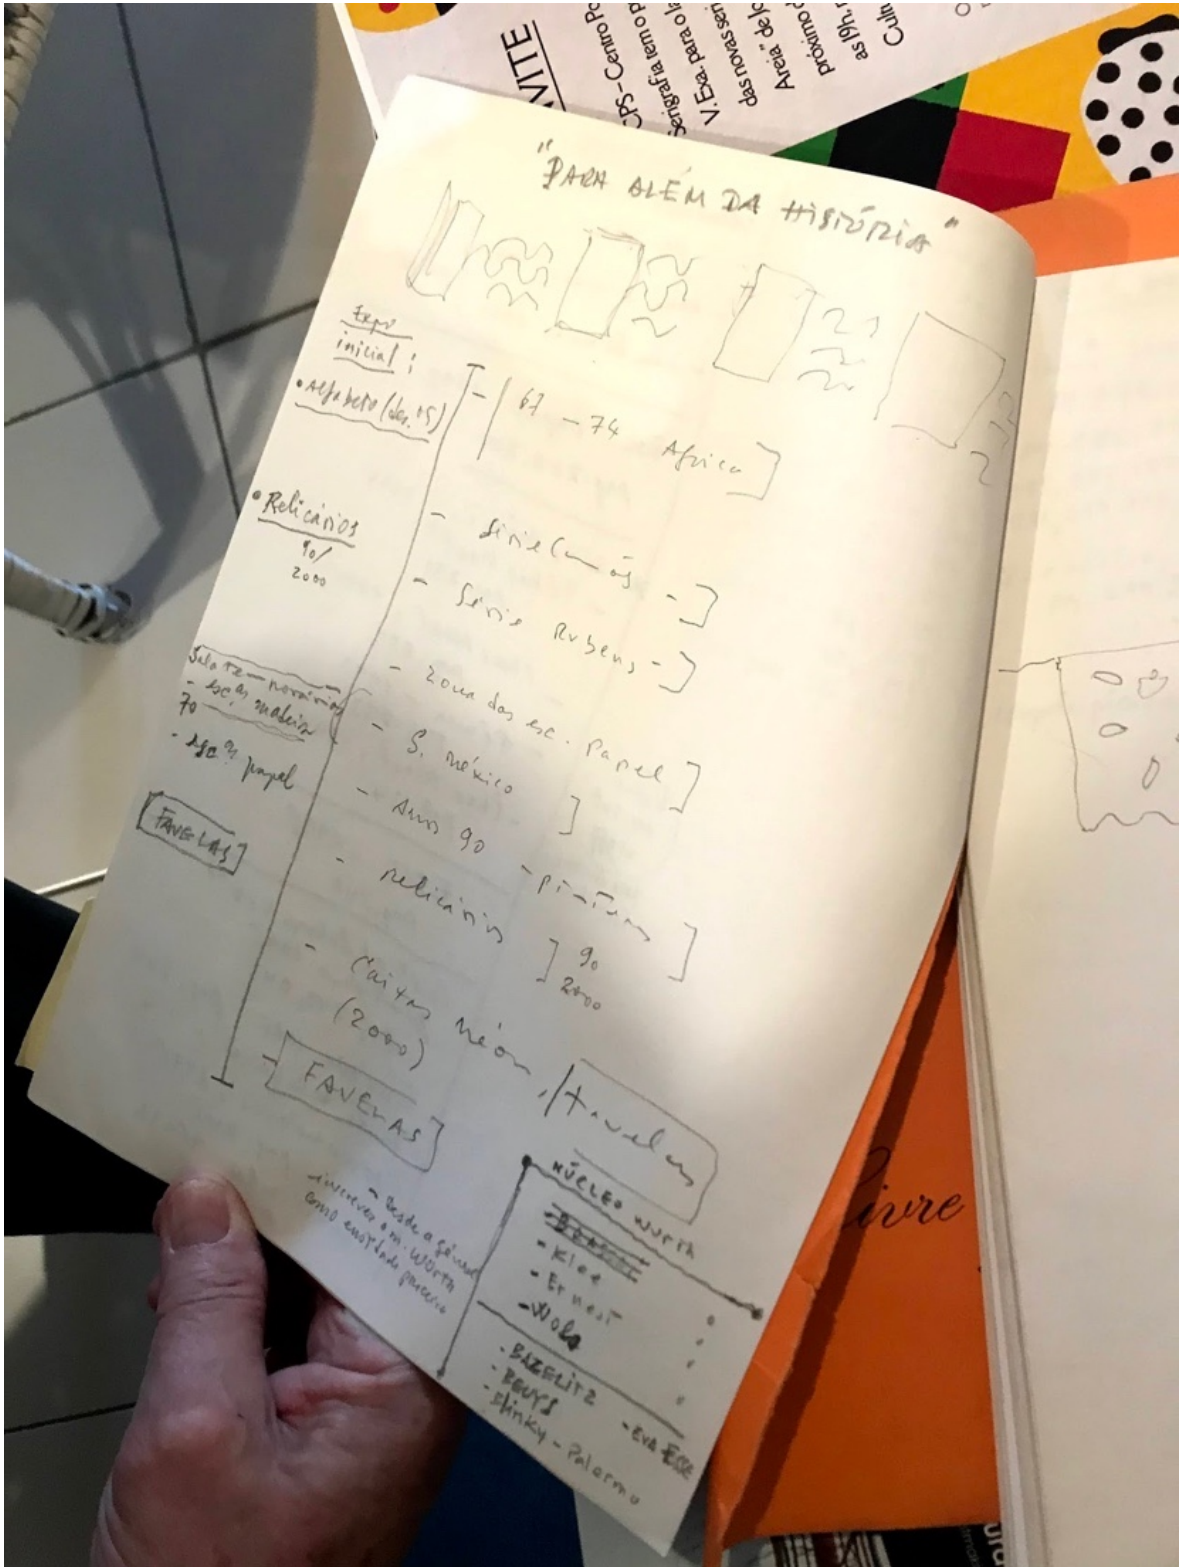 VITE
CPS - Centro Po
Serigrafia tem o p
V. Exa. para o la
das novas seri
Areia" de Jo
próximo d
as 19h, n
Cult
"PARA ALÉM DA HISTÓRIA"
Expo
inicial :
• Alfabeto (des. +S)
• Relicários
90/
2000
- esc.as madeira
70
- esc.as papel
FAVELAS
- 61 - 74 Africa ]
- Série Camões - ]
- Série Rubens - ]
- Zona das esc. papel ]
- S. México ]
- Anos 90 - pinturas ]
- relicários ] 90
2000
- Caixas néon,
(2000)
- FAVELAS
- Desde a génese
inscrever o m. Würth
como entidade parceira
NÚCLEO WURTH
- Klee
- Ernest
- Wols
- BAZELITZ
- BEUYS - EVA ESSE
- Blinky - Palermo
ivre